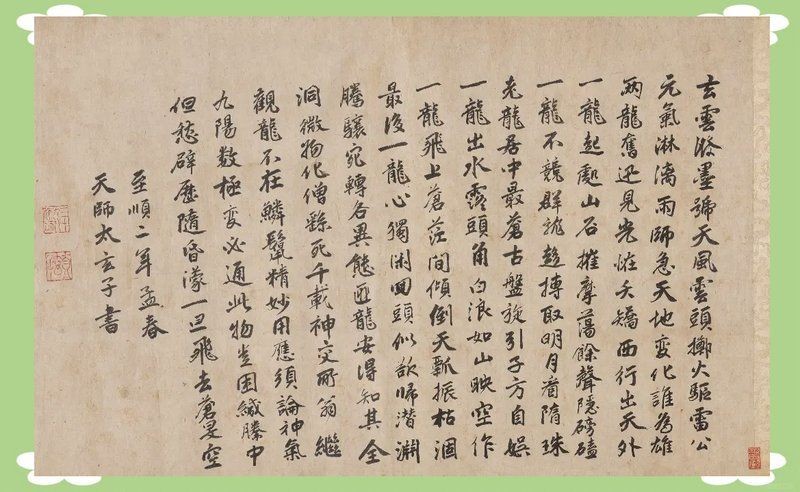 玄雲潑墨號天風雲頭擲火驅雷公
元氣淋漓雨師急天地變化誰為雄
兩龍奮迅見光怪夭矯西行出天外
一龍起處山石摧摩蕩餘聲隱磅磕
一龍不競群龍趨搏取明月首隋珠
老龍居中最蒼古盤旋引子方自娛
一龍出水露頭角白浪如山映空作
一龍飛上蒼茫間傾倒天瓢振枯涸
最後一龍心獨閑回頭似欲歸潛淵
騰驤宛轉各異態匪龍安得知其全
洞微物化僧繇死千載神交所翁繼
觀龍不在鱗鬣精妙用應須論神氣
九陽數極變必通此物豈困緘縢中
但愁辟歷隨昏濛一旦飛去蒼旻空
至順二年孟春
天師太玄子書